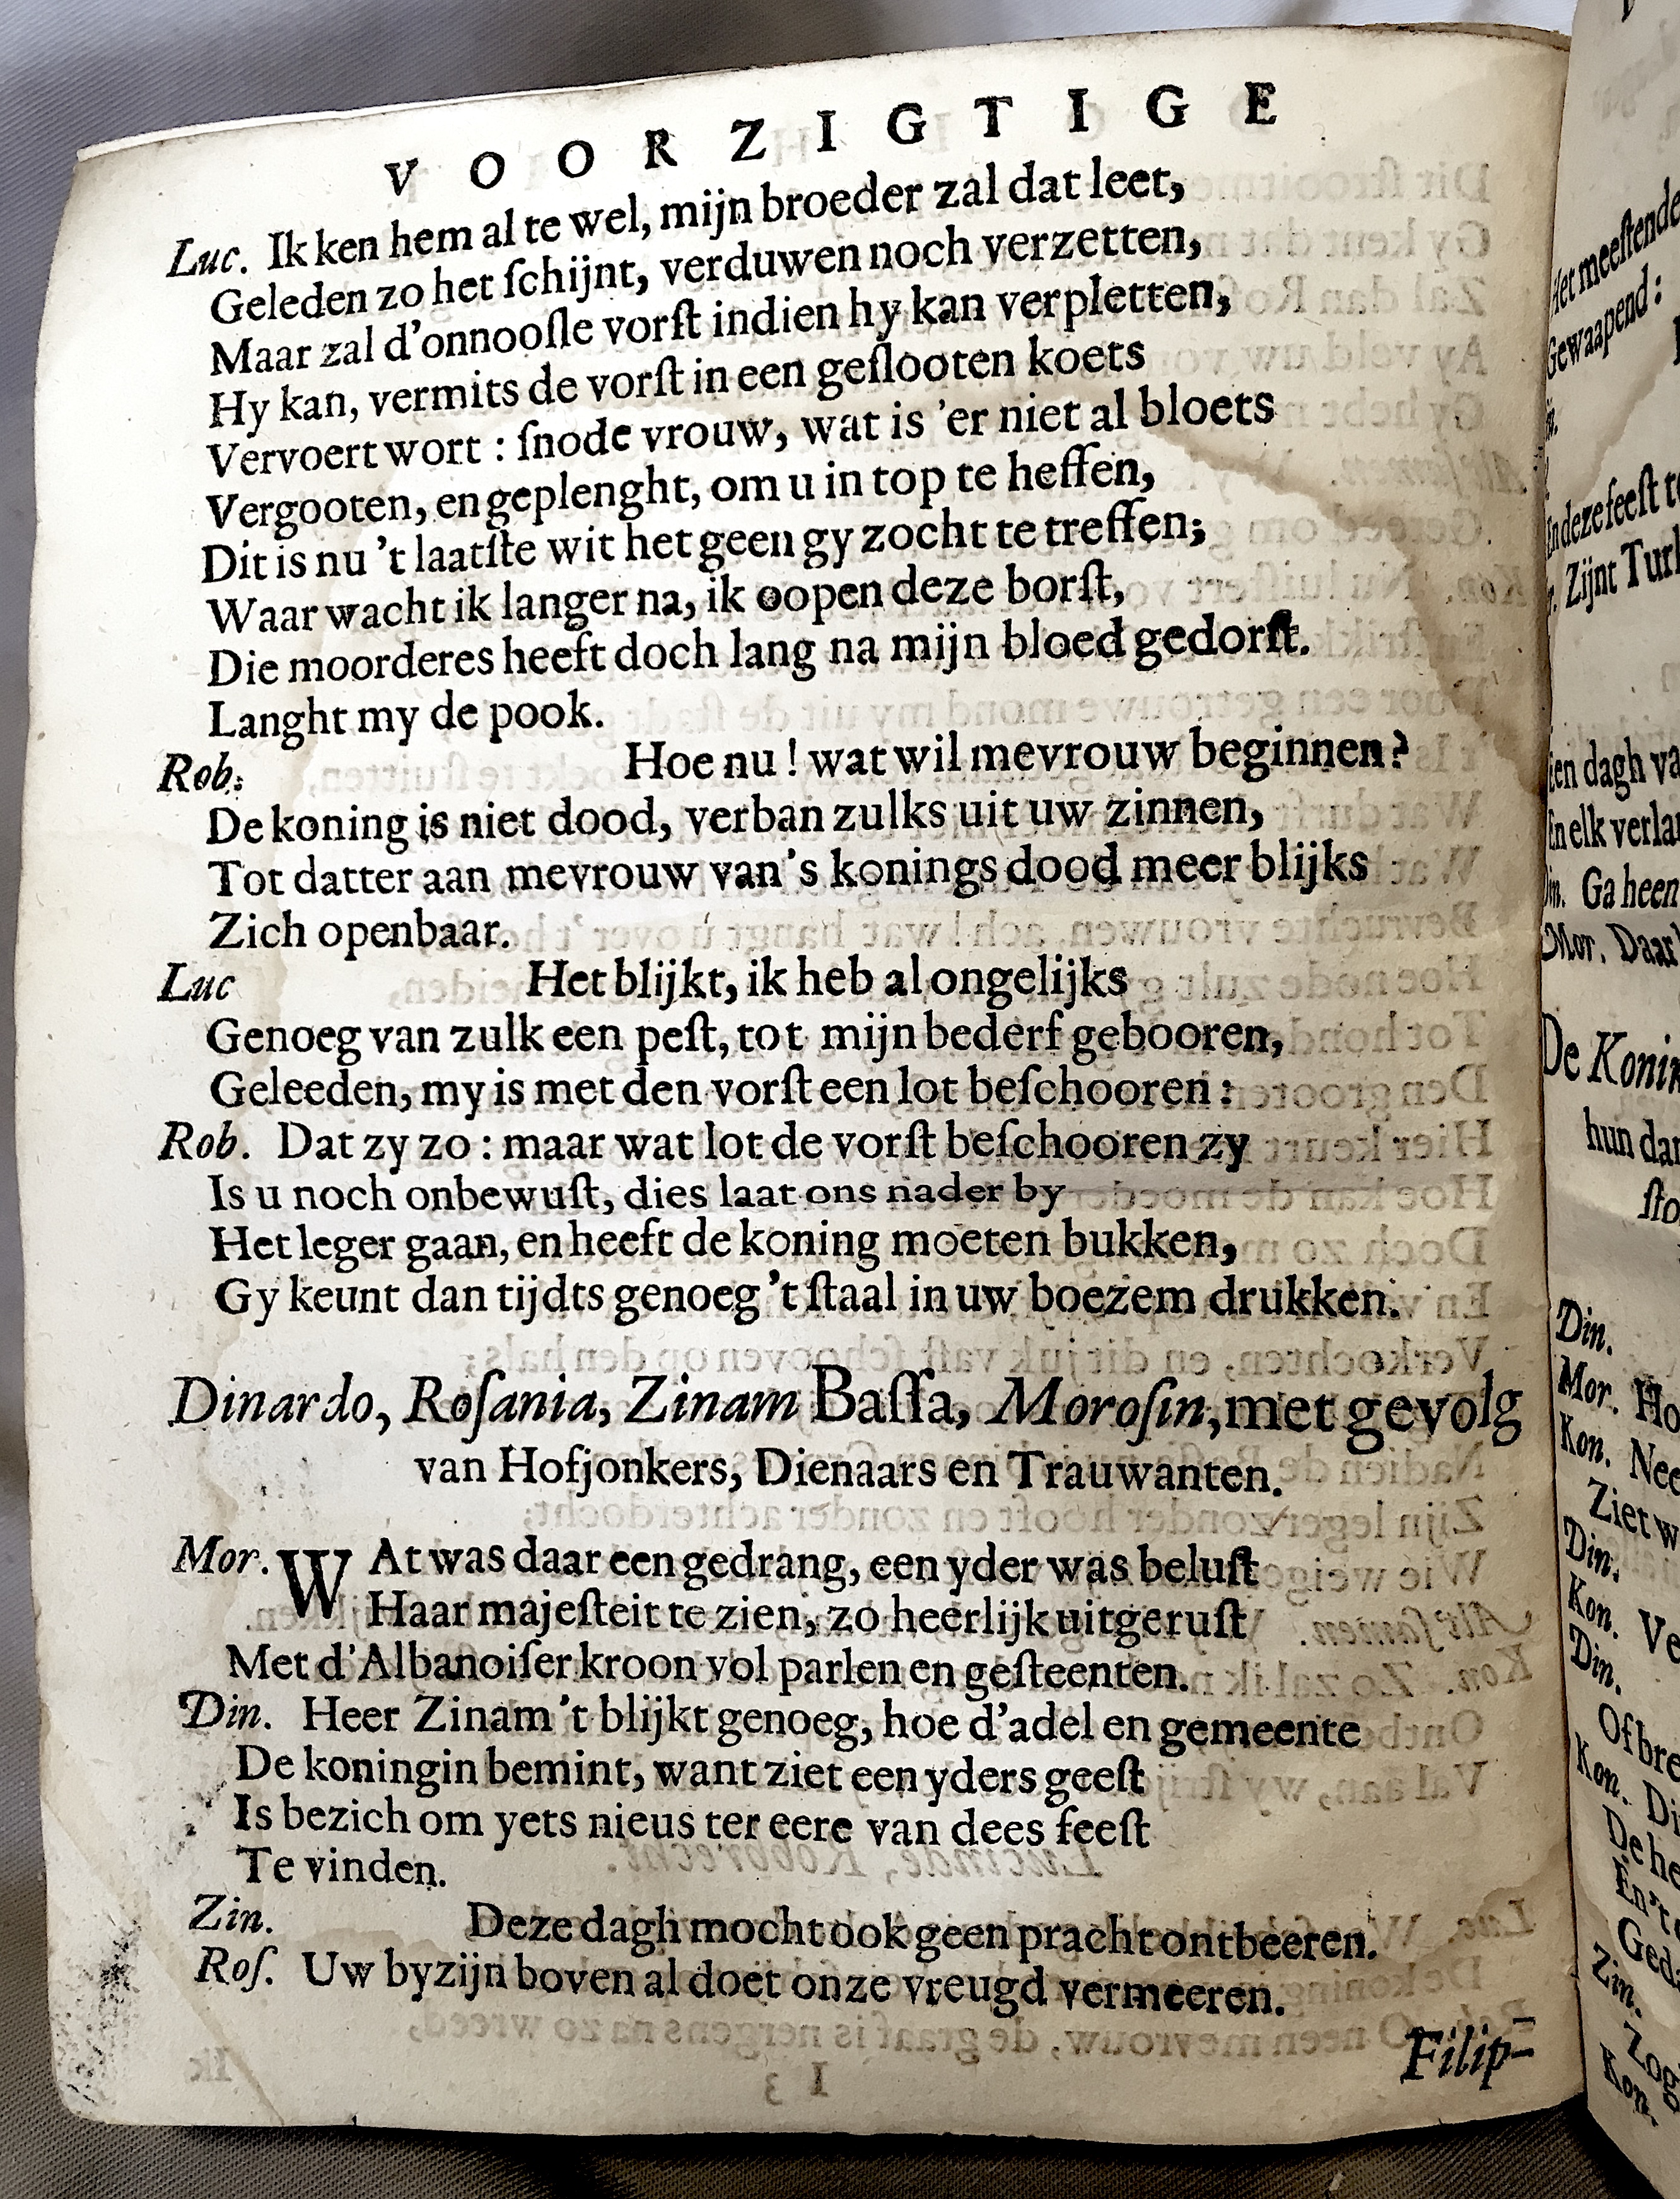 VOORZIGTIGE
Luc. Ik ken hem al te wel, mijn broeder zal dat leet,
Geleden zo het ſchijnt, verduwen noch verzetten,
Maar zal d'onnooſle vorſt indien hy kan verpletten,
Hy kan, vermits de vorſt in een geſlooten koets
Vervoert wort : ſnode vrouw, wat is 'er niet al bloets
Vergooten, en geplenght, om u in top te heffen,
Dit is nu 't laatſte wit het geen gy zocht te treffen;
Waar wacht ik langer na, ik oopen deze borſt,
Die moorderes heeft doch lang na mijn bloed gedorſt.
Langht my de pook.
Rob: Hoe nu ! wat wil mevrouw beginnen?
De koning is niet dood, verban zulks uit uw zinnen,
Tot datter aan mevrouw van's konings dood meer blijks
Zich openbaar.
Luc Het blijkt, ik heb al ongelijks
Genoeg van zulk een peſt, tot mijn bederf gebooren,
Geleeden, my is met den vorſt een lot beſchooren :
Rob. Dat zy zo : maar wat lot de vorſt beſchooren zy
Is u noch onbewuſt, dies laat ons nader by
Het leger gaan, en heeft de koning moeten bukken,
Gy keunt dan tijdts genoeg 't ſtaal in uw boezem drukken.
Dinardo, Roſania, Zinam Baſſa, Moroſin, met gevolg
van Hofjonkers, Dienaars en Trauwanten.
Mor. WAt was daar een gedrang, een yder was beluſt
Haar majeſteit te zien, zo heerlijk uitgeruſt
Met d'Albanoiſer kroon vol parlen en geſteenten.
Din. Heer Zinam 't blijkt genoeg, hoe d'adel en gemeente
De koningin bemint, want ziet een yders geeſt
Is bezich om yets nieus ter eere van dees feeſt
Te vinden.
Zin. Deze dagh mocht ook geen pracht ontbeeren.
Roſ. Uw byzijn boven al doet onze vreugd vermeeren.
Filip-
Het meeſtende
Gewaapend :
En deze feeſt
Zijnt Turk
Een dagh va
En elk verla
Din. Ga heen
Mor. Daar
De Konin
hun dar
ſto
Din.
Mor. Ho
Kon. Nee
Ziet w
Din.
Kon. Ve
Din.
Of bre
Kon. Di
De he
En't
Ged
Zin.
Zog
Kon.